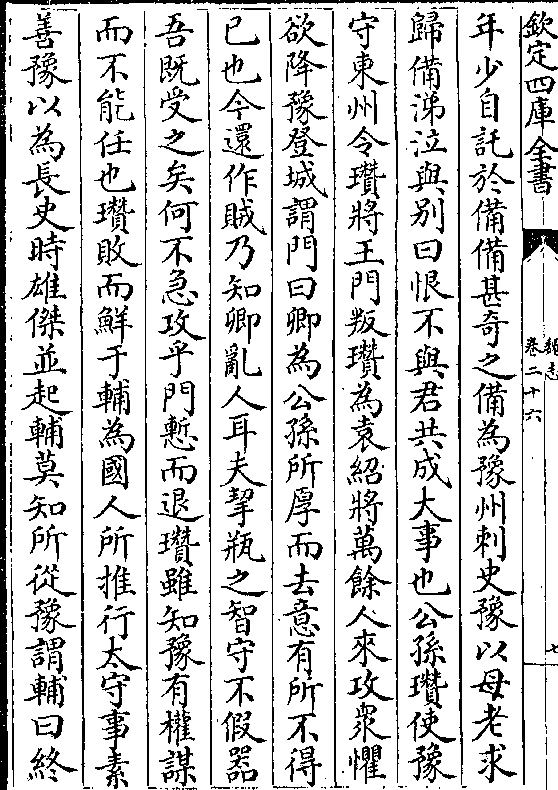 欽定四庫全書
魏志
卷二十六
七
年少自託於備備甚奇之備為豫州刺史豫以母老求
歸備涕泣與别曰恨不與君共成大事也公孫瓚使豫
守東州令瓚將王門叛瓚為袁紹將萬餘人來攻衆懼
欲降豫登城謂門曰卿為公孫所厚而去意有所不得
已也今還作賊乃知卿亂人耳夫挈瓶之智守不假器
吾既受之矣何不急攻乎門慙而退瓚雖知豫有權謀
而不能任也瓚敗而鮮于輔為國人所推行太守事素
善豫以為長史時雄傑並起輔莫知所從豫謂輔曰終